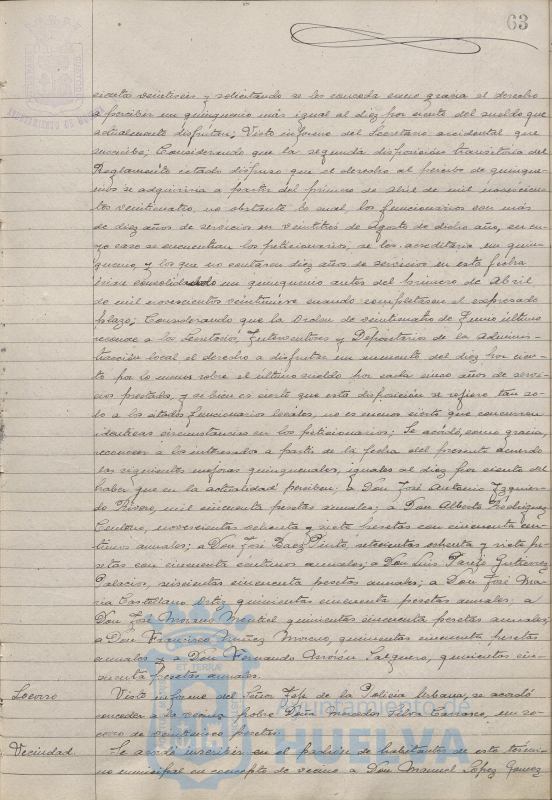 63
cientos veintiseis y solicitando se les conceda como gracia el derecho
a percibir un quinquenio más igual al diez por ciento del sueldo que
actualmente disfrutan; Visto informe del Secretario accidental que
suscribe; Considerando que la segunda disposición transitoria del
Reglamento citado dispuso que el derecho al percibo de quinque-
nios se adquiriria a partir del primero de Abril de mil novecien
tos veinticuatro, no obstante lo cual, los funcionarios con más
de diez años de servicios en veintitres de Agosto de dicho año, en cu-
yo caso se encuentran los peticionarios, se les acreditaria un quin-
quenio, y los que no contaran diez años de servicios en esta fecha
consolidado un quinquenio antes del primero de Abril
de mil novecientos veintinueve cuando completasen el expresado
plazo; Considerando que la Orden de veinticuatro de Junio último
reconoce a los Secretarios, Interventores y Depositarios de la Adminis-
tración local el derecho a disfrutar un aumento del diez por cien-
to por lo menos sobre el último sueldo por cada cinco años de servi-
cios prestados, y si bien es cierto que esta disposición se refiere tan so-
lo a los citados funcionarios locales, no es menos cierto que concurren
identicas circunstancias en los peticionarios; Se acordó, como gracia,
reconocer a los interesados a partir de la fecha del presente acuerdo
las siguientes mejoras quinquenales, iguales al diez por ciento del
haber que en la actualidad perciben: a Don José Antonio Izquier-
do Rivero, mil cincuenta pesetas anuales; a Don Alberto Rodriguez
Centeno, novecientas ochenta y siete pesetas con cincuenta cen-
timos anuales; a Don José Baez Pinto, setecientas ochenta y siete pe-
setas con cincuenta centimos anuales; a Don Luis Gutierrez
Palacios, seiscientas cincuenta pesetas anuales; a Don José Ma-
ria Castellano Ortiz quinientas cincuenta pesetas anuales; a
Don José Morano Montiel quinientas cincuenta pesetas anuales;
a Don Francisco Nuñez Moreno, quinientas cincuenta pesetas
anuales y a Don Fernando Morón Salguero, quinientas cin-
cuenta pesetas anuales.
Socorro Visto informe del Señor Jefe de la Policia Urbana, se acordó
conceder a la vecina pobre Doña Silva Carrasco, un so-
corro de veinticinco pesetas.
Vecindad. Se acordó inscribir en el padrón de habitantes de este térmi-
no municipal en concepto de vecino a Don Manuel Lopez Gomez
Ayuntamiento de
HUELVA